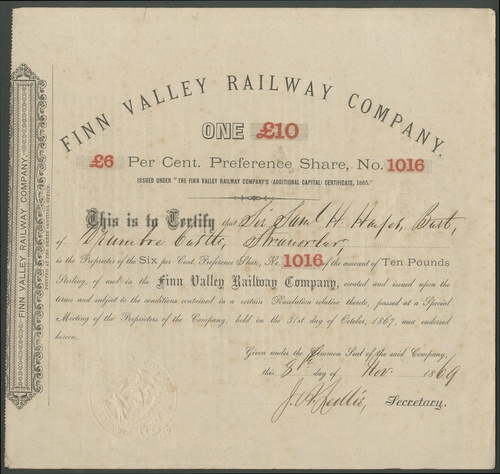 FINN VALLEY RAILWAY COMPANY.
ONE £10
£6 Per Cent. Preference Share, No. 1016
ISSUED UNDER "THE FINN VALLEY RAILWAY COMPANY'S (ADDITIONAL CAPITAL) CERTIFICATE, 1865."
This is to Certify that Sir Saml H Hayes, Bart,
of Drumboe Castle, Stranorlar,
is the Proprietor of the Six per Cent. Preference Share, No. 1016 of the amount of Ten Pounds
Sterling, of and in the Finn Valley Railway Company, created and issued upon the
terms and subject to the conditions contained in a certain Resolution relative thereto, passed at a Special
Meeting of the Proprietors of the Company, held on the 31st day of October, 1867, and endorsed
hereon.
Given under the Common Seal of the said Company,
this 8th day of Nov. 1869
Secretary.
FINN VALLEY RAILWAY COMPANY.